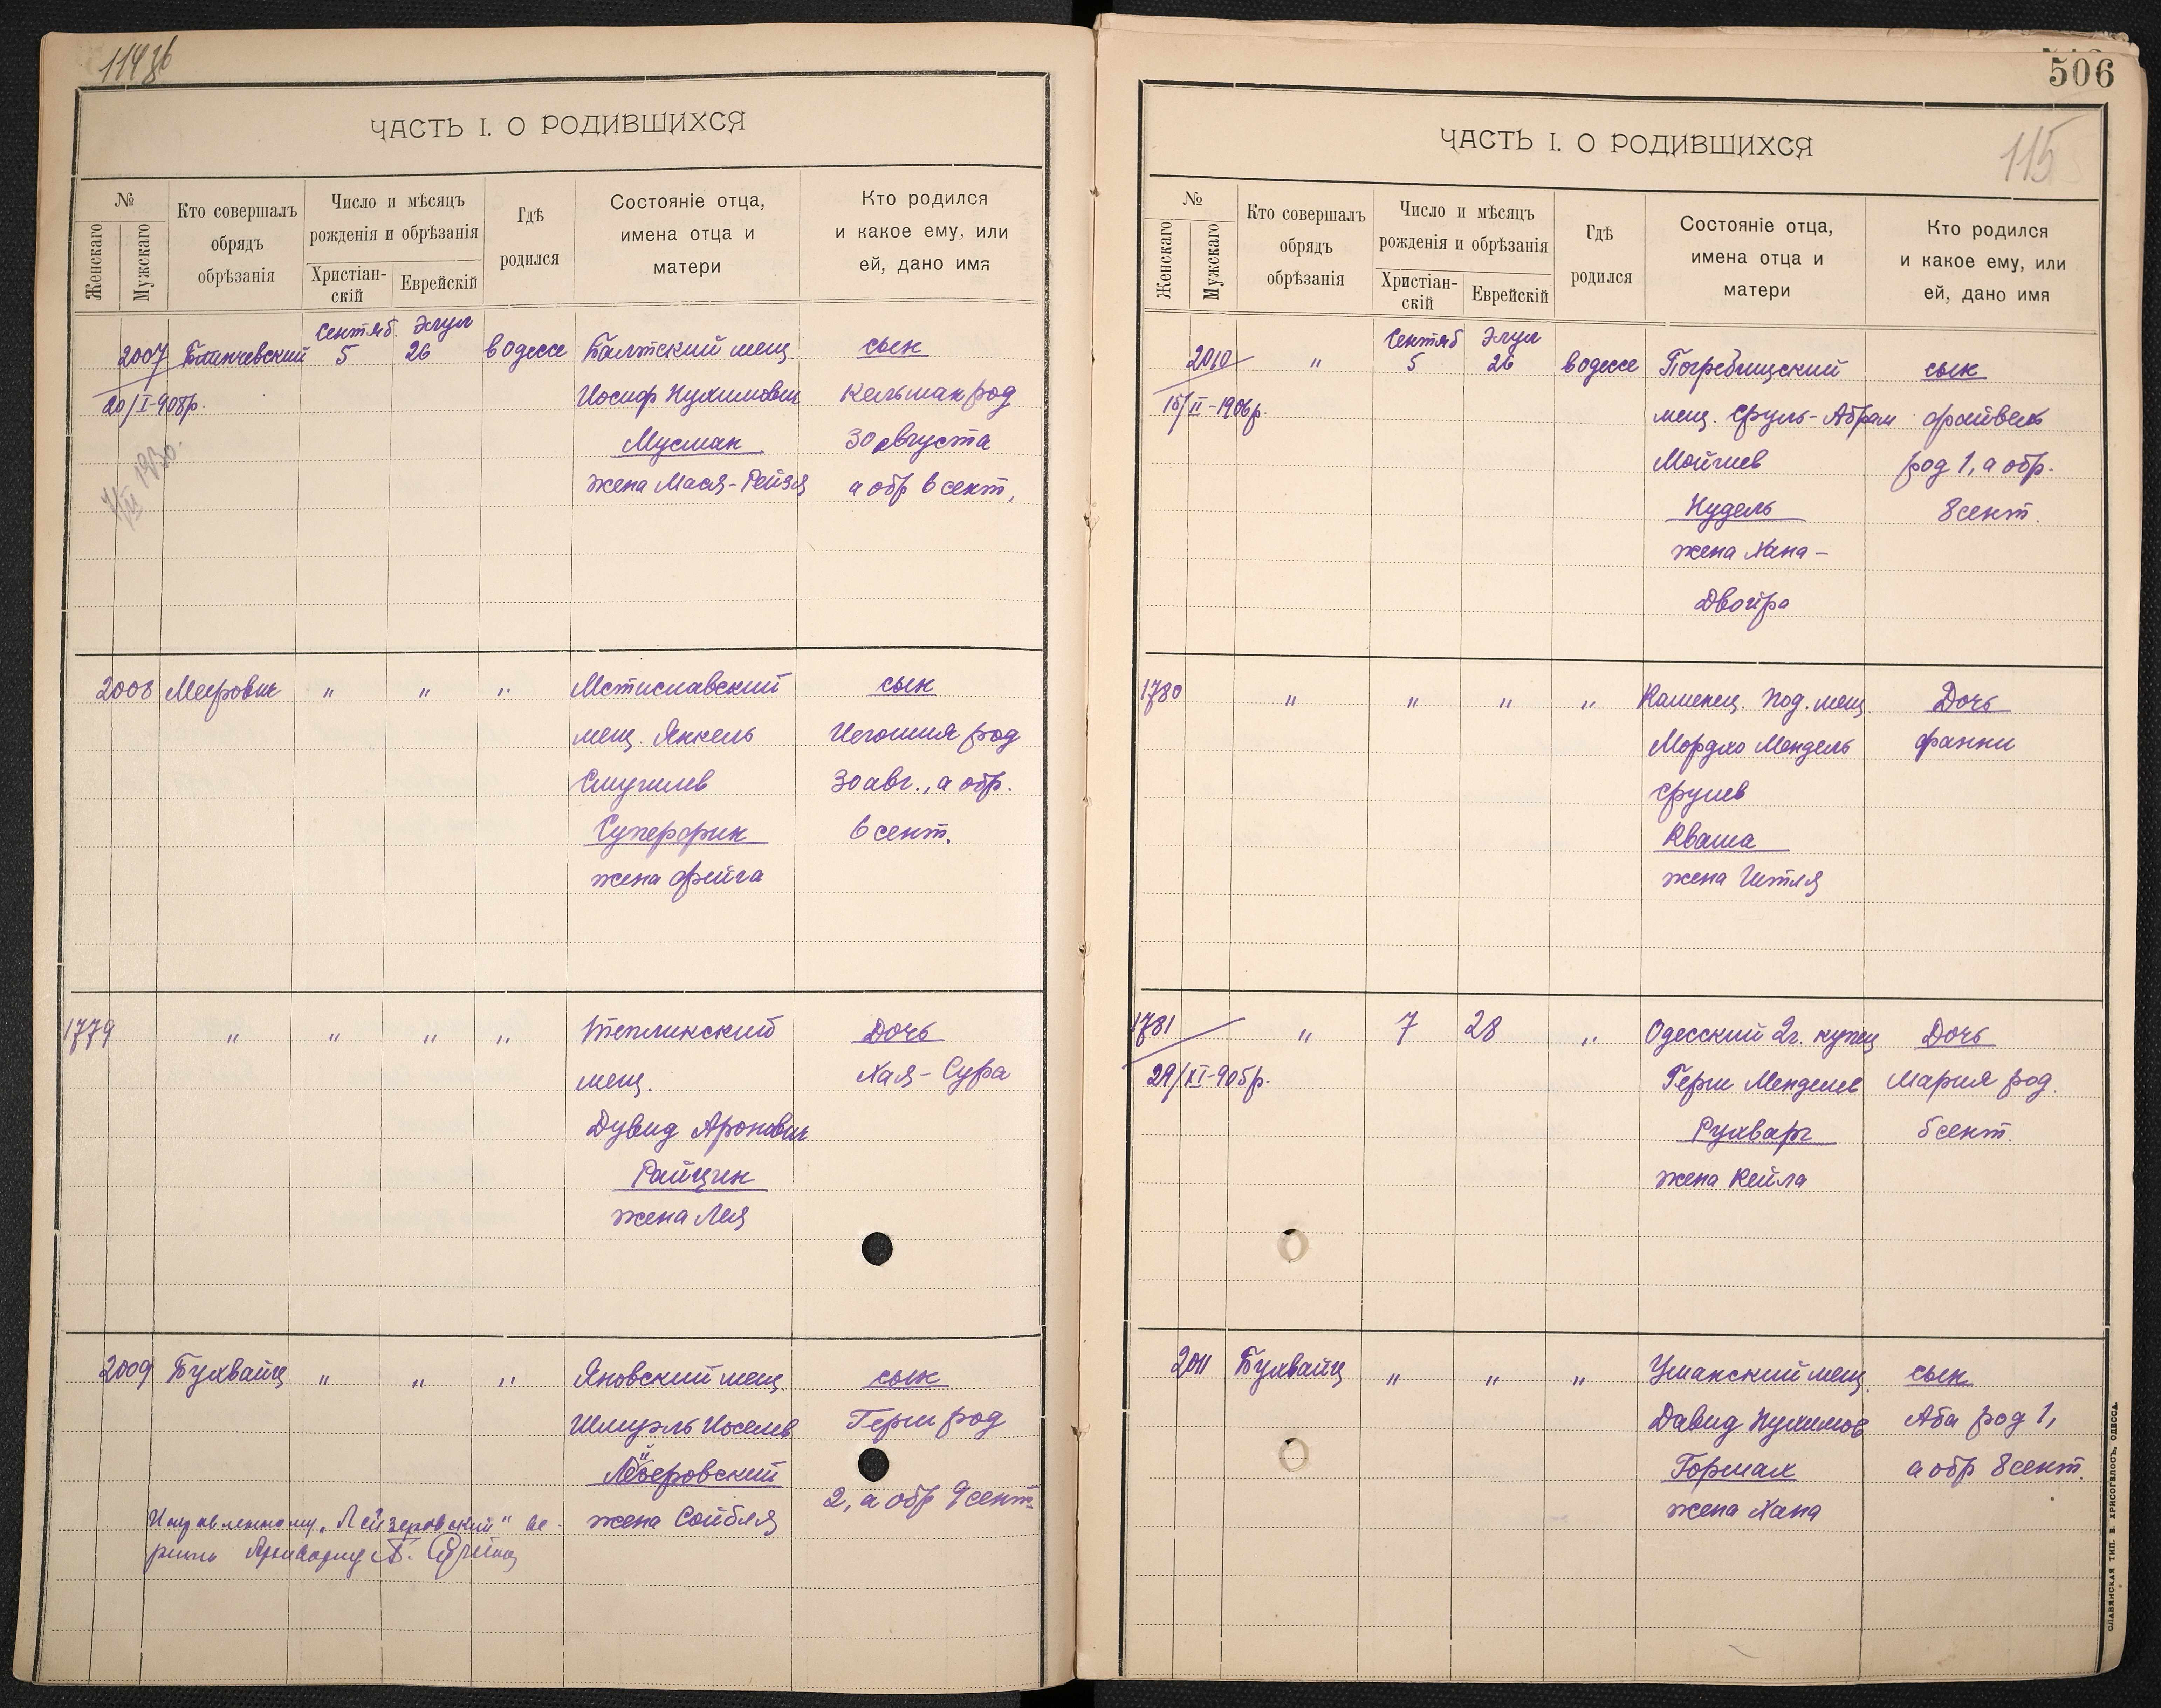 114 об
ЧАСТЬ I. О РОДИВШИХСЯ
№
Женскаго
Мужскаго
Кто совершалъ
обрядъ
обрѣзанія
Число и мѣсяцъ
рожденія и обрѣзанія
Христіан-
скій
Еврейскій
Гдѣ
родился
Состояніе отца,
имена отца и
матери
Кто родился
и какое ему, или
ей, дано имя
Сентяб. Элул
2007 5 26 в Одессе Балтский мещ. сын
20/I-908р. Иосиф Нухимович Кельман род
Мусман 30 августа
жена Мася-Рейзя а обр 6 сент.
7/II 1930.
2008 Меерович " " " Мстиславский сын
мещ. Янкель Иегошия род
Смуилев 30 авг., а обр.
Суперфин 6 сент.
жена Фейга
1779 " " " " Тепликский Дочь
мещ. Хая-Сура
Дувид Аронович
Райцин
жена Лея
2009 Бухвайц " " " Яновский мещ. сын
Шмуэль Иоселев Герш род
Лейзеровский
2, а обр 9 сент.
жена Сойбля
"Лейзеровский" ве-
506
115
ЧАСТЬ I. О РОДИВШИХСЯ
№
Женскаго
Мужскаго
Кто совершалъ
обрядъ
обрѣзанія
Число и мѣсяцъ
рожденія и обрѣзанія
Христіан-
скій
Еврейскій
Гдѣ
родился
Состояніе отца,
имена отца и
матери
Кто родился
и какое ему, или
ей, дано имя
Сентяб Элул
2010 " 5 26 в Одессе Погребищский сын
15/II-1906р. мещ. Сруль-Абрам Файвель
Мойшев род 1, а обр.
Нудель 8 сент.
жена Хана-
Двойра
1780 " " " " Каменец. Под. мещ. Дочь
Мордко Мендель Фанни
Срулев
Кваша
жена Ителя
1781 " 7 28 " Одесский 2г. купец Дочь
29/XI-905р. Герш Менделев Мария род.
Рухварг 5 сент.
жена Кейла
2011 Бухвайц " " " Уманский мещ. сын
Давид Нухимов Аба род 1,
Горшах а обр 8 сент.
жена Хана
СЛАВЯНСКАЯ ТИП. В. ХРИСОГЕЛОСЪ, ОДЕССА.